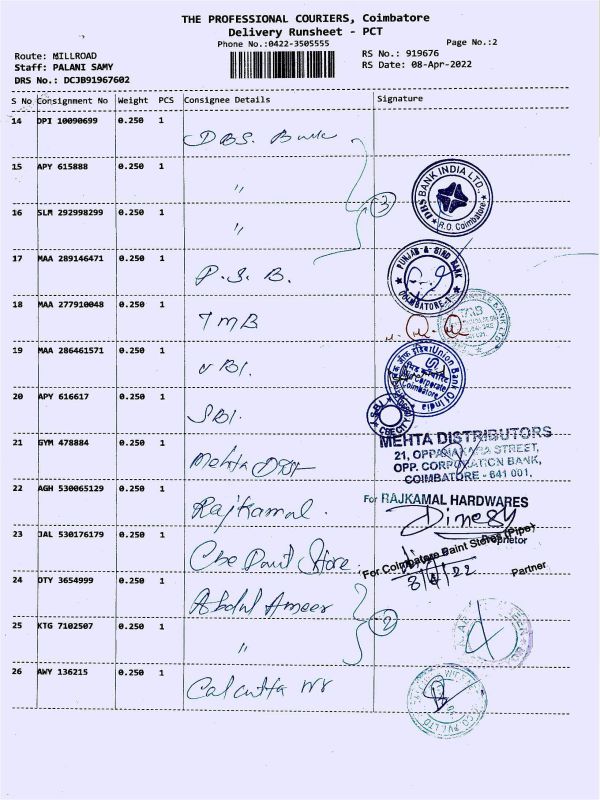 THE PROFESSIONAL COURIERS, Coimbatore
Delivery Runsheet - PCT
Phone No.:0422-3505555
Page No.:2
Route: MILLROAD
RS No.: 919676
Staff: PALANI SAMY
RS Date: 08-Apr-2022
DRS No.: DCJB91967602
S No Consignment No Weight PCS Consignee Details Signature
14 DPI 10090699 0.250 1 DBS. Bank
15 APY 615888 0.250 1 "
DBS BANK INDIA LTD.,
R.O. Coimbatore
16 SLM 292998299 0.250 1 "
3
17 MAA 289146471 0.250 1 P.S.B.
PUNJAB & SIND BANK
COIMBATORE-1
18 MAA 277910048 0.250 1 TMB
19 MAA 286461571 0.250 1 UBI.
Union Bank Of India
Corporate
Coimbatore
20 APY 616617 0.250 1 SBI.
SBI
MEHTA DISTRIBUTORS
21, OPPANAKARA STREET,
OPP. CORPORATION BANK,
COIMBATORE - 641 001.
21 GYM 478884 0.250 1 Mehta Dist
22 AGH 530065129 0.250 1 Rajkamal.
For RAJKAMAL HARDWARES
Dinesh
Proprietor
23 JAL 530176179 0.250 1 Cbe Paint Store
For Coimbatore Paint Stores (Pipe)
8/4/22
Partner
24 DTY 3654999 0.250 1 Abdul Ameer
2
25 KTG 7102507 0.250 1 "
26 AWY 136215 0.250 1 Calcutta